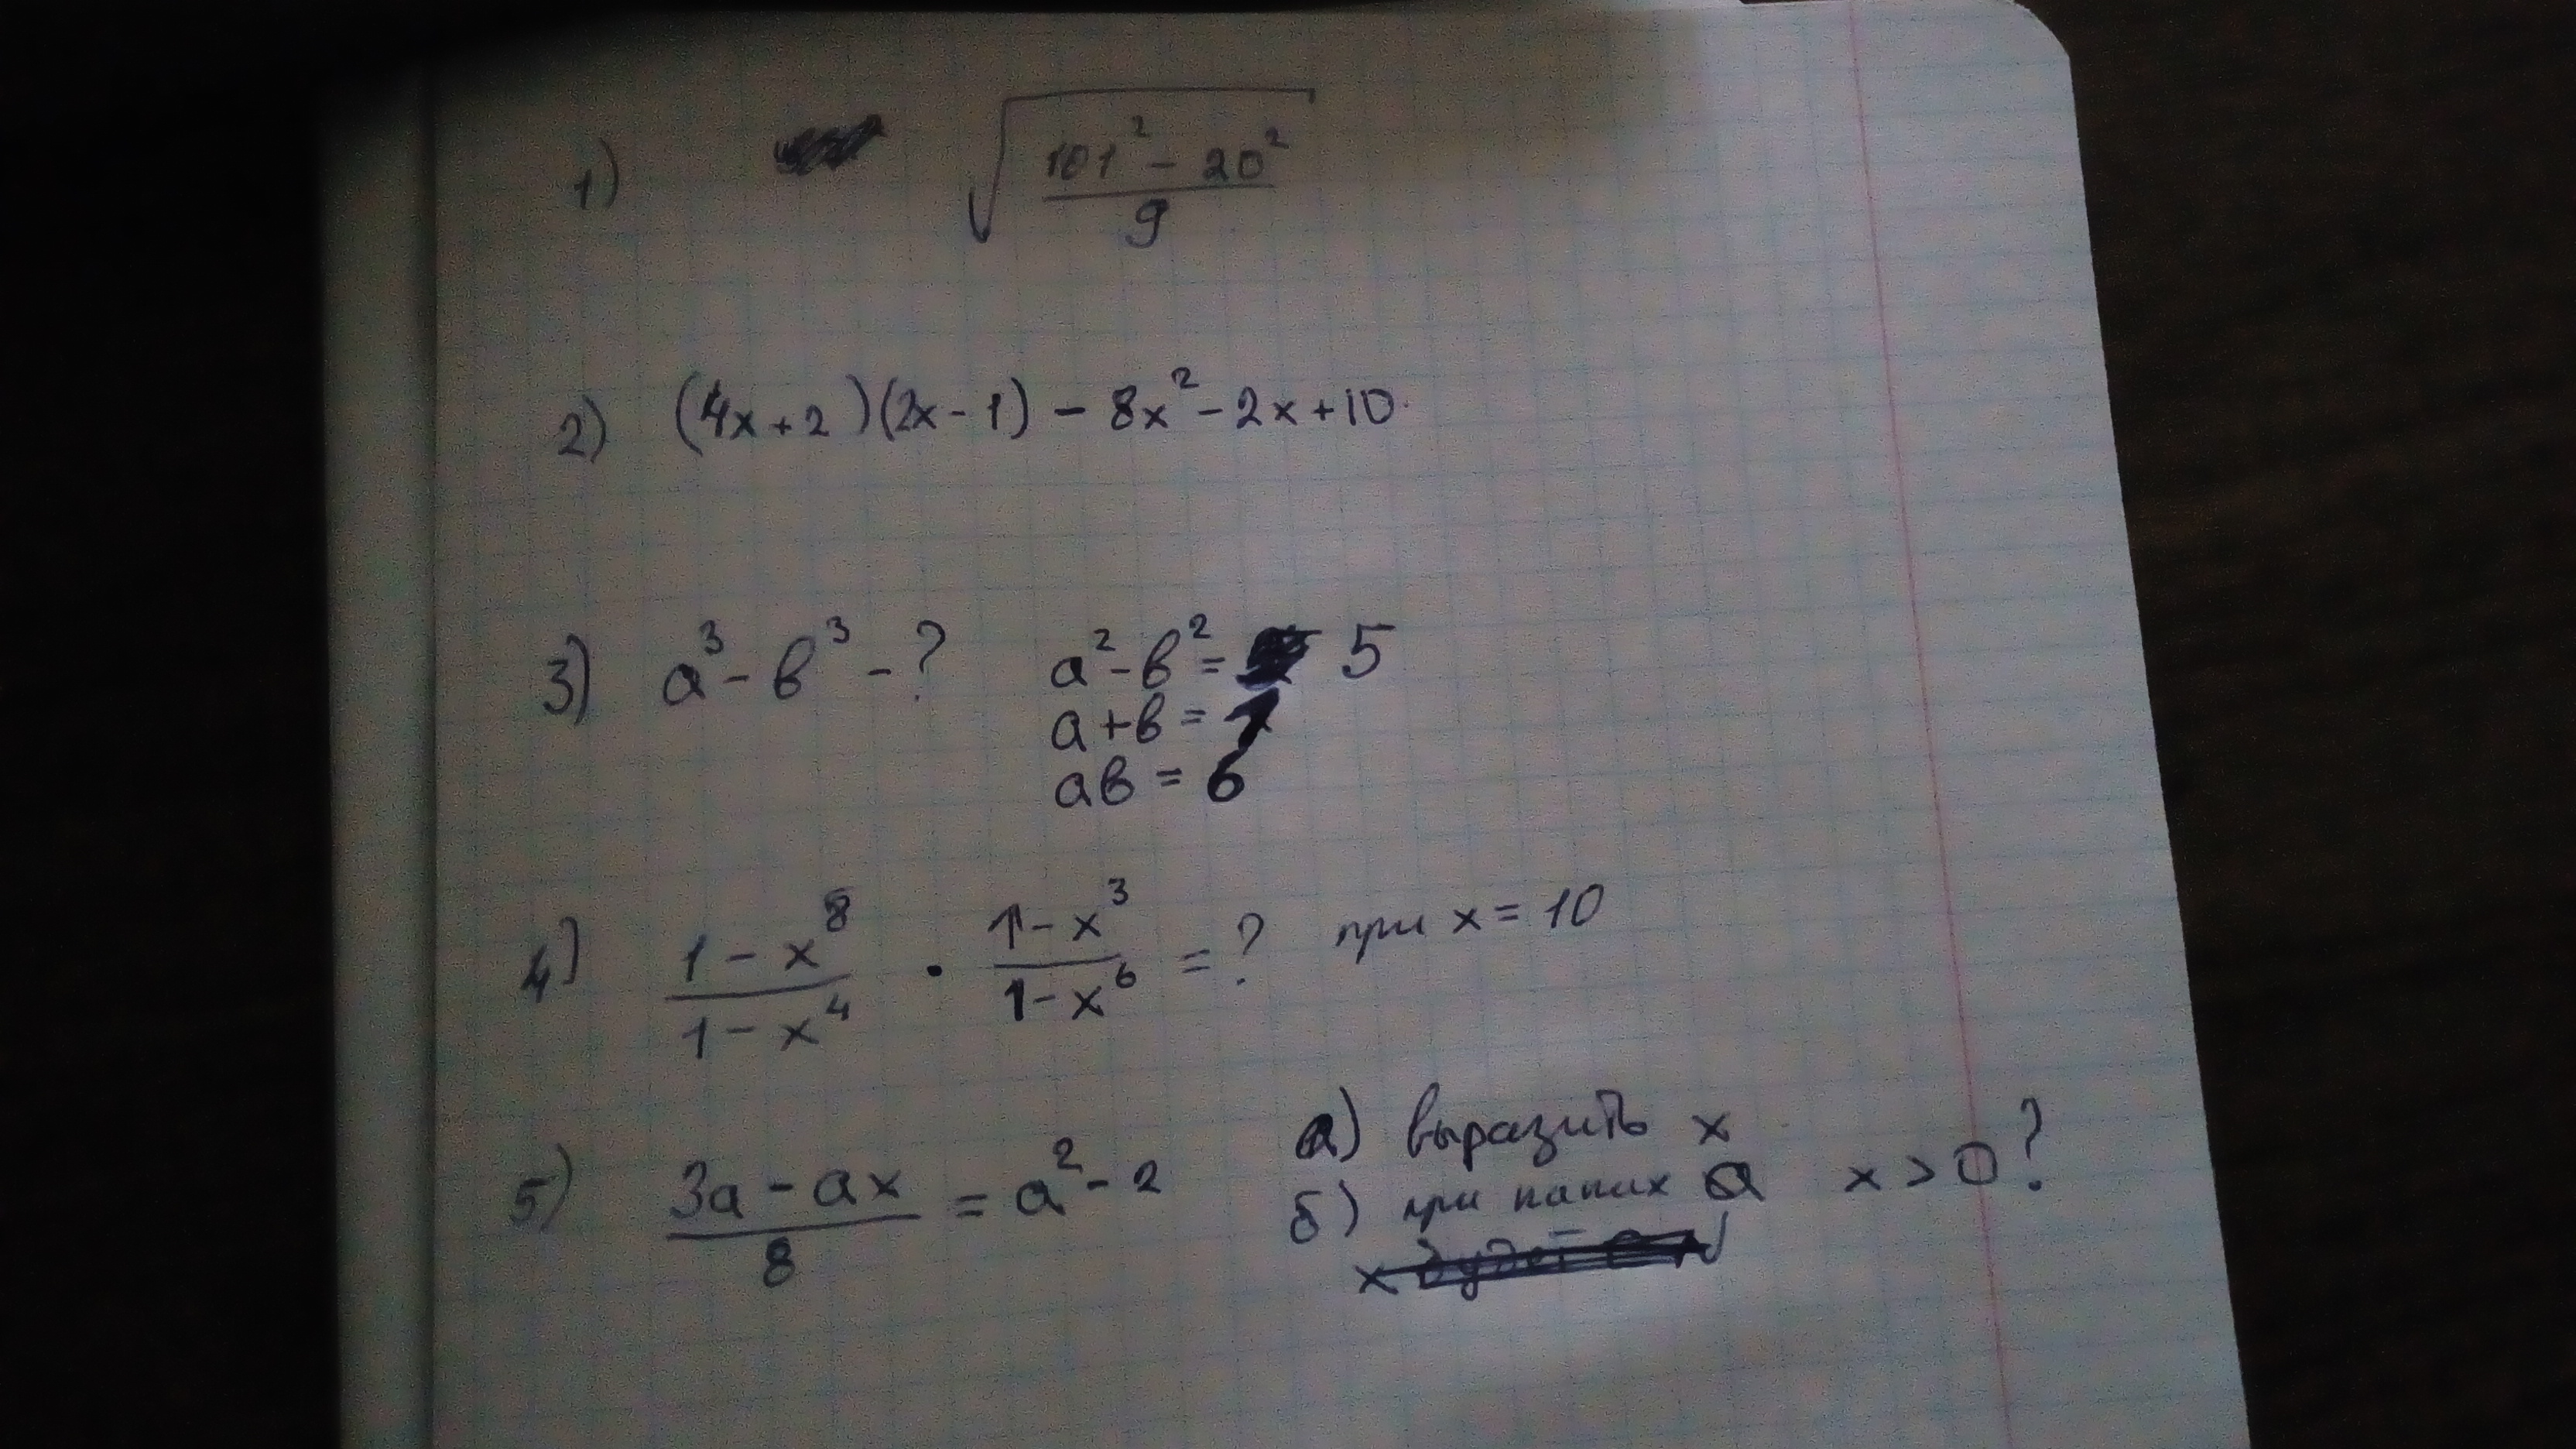 1) √((101² - 20²)/9)
2) (4x+2)(2x-1) - 8x² - 2x + 10
3) a³ - b³ - ? a² - b² = 5
a + b = 1
ab = 6
4) (1 - x⁸)/(1 - x⁴) · (1 - x³)/(1 - x⁶) = ? при x = 10
5) (3a - ax)/8 = a² - 2 а) выразить x
б) при каких a x > 0?